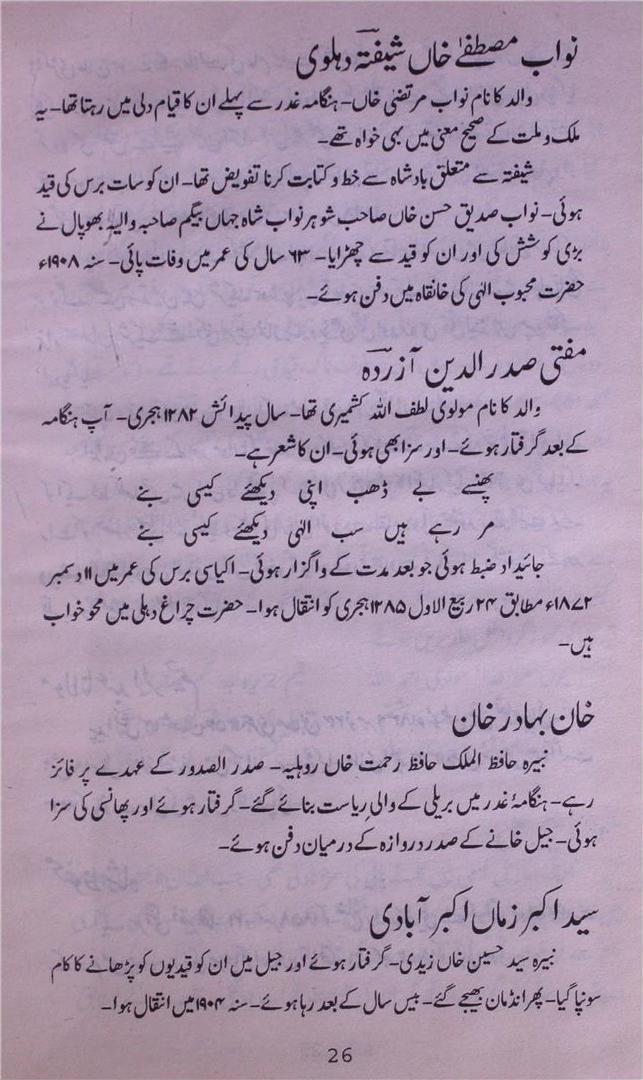 نواب مصطفےٰ خاں شیفتہ دہلوی
والد کا نام نواب مرتضیٰ خاں۔ ہنگامہ غدر سے پہلے ان کا قیام دلی میں رہتا تھا۔ یہ
ملک و ملت کے صحیح معنی میں بہی خواہ تھے۔
شیفتہ سے متعلق بادشاہ سے خط و کتابت کرنا تفویض تھا۔ ان کو سات برس کی قید
ہوئی۔ نواب صدیق حسن خاں صاحب شوہر نواب شاہ جہاں بیگم صاحبہ والیہ بھوپال نے
بڑی کوشش کی اور ان کو قید سے چھڑایا۔ ۶۳ سال کی عمر میں وفات پائی۔ سنہ ۱۹۰۸ء
حضرت محبوب الٰہی کی خانقاہ میں دفن ہوئے۔
مفتی صدر الدین آزردہ
والد کا نام مولوی لطف اللہ کشمیری تھا۔ سال پیدائش ۱۲۸۲ ہجری۔ آپ ہنگامہ
کے بعد گرفتار ہوئے۔ اور سزا بھی ہوئی۔ ان کا شعر ہے۔
پھنسے بے ڈھب اپنی دیکھئے کیسی بنے
مر رہے ہیں سب الٰہی دیکھئے کیسی بنے
جائیداد ضبط ہوئی جو بعد مدت کے واگزار ہوئی۔ اکیاسی برس کی عمر میں ۱۱ دسمبر
۱۸۷۲ء مطابق ۲۴ ربیع الاول ۱۲۸۵ ہجری کو انتقال ہوا۔ حضرت چراغ دہلی میں محو خواب
ہیں۔
خان بہادر خان
نبیرہ حافظ الملک حافظ رحمت خاں روہلیہ۔ صدر الصدور کے عہدے پر فائز
رہے۔ ہنگامۂ غدر میں بریلی کے والیِ ریاست بنائے گئے۔ گرفتار ہوئے اور پھانسی کی سزا
ہوئی۔ جیل خانے کے صدر دروازہ کے درمیان دفن ہوئے۔
سید اکبر زماں اکبر آبادی
نبیرہ سید حسین خاں زیدی۔ گرفتار ہوئے اور جیل میں ان کو قیدیوں کو پڑھانے کا کام
سونپا گیا۔ پھر انڈمان بھیجے گئے۔ بیس سال کے بعد رہا ہوئے۔ سنہ ۱۹۰۴ میں انتقال ہوا۔
26